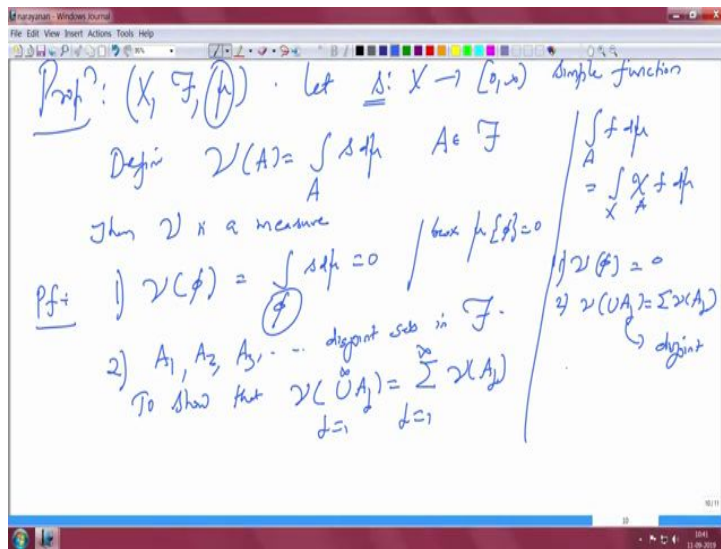 narayanan - Windows Journal
File Edit View Insert Actions Tools Help
Propn: (X, F, μ). Let s: X → [0, ∞) simple function
Define ν(A) = ∫_A s dμ A ∈ F
Then ν is a measure
Pf: 1) ν(φ) = ∫_φ s dμ = 0 / μ{φ}=0
2) A1, A2, A3, ... disjoint sets in F.
To show that ν(∪_{j=1}^∞ A_j) = Σ_{j=1}^∞ ν(A_j)
∫_A f dμ
= ∫_X χ_A f dμ
1) ν(φ) = 0
2) ν(∪A_j) = Σν(A_j)
disjoint
10/11
10
10:41
11-09-2019